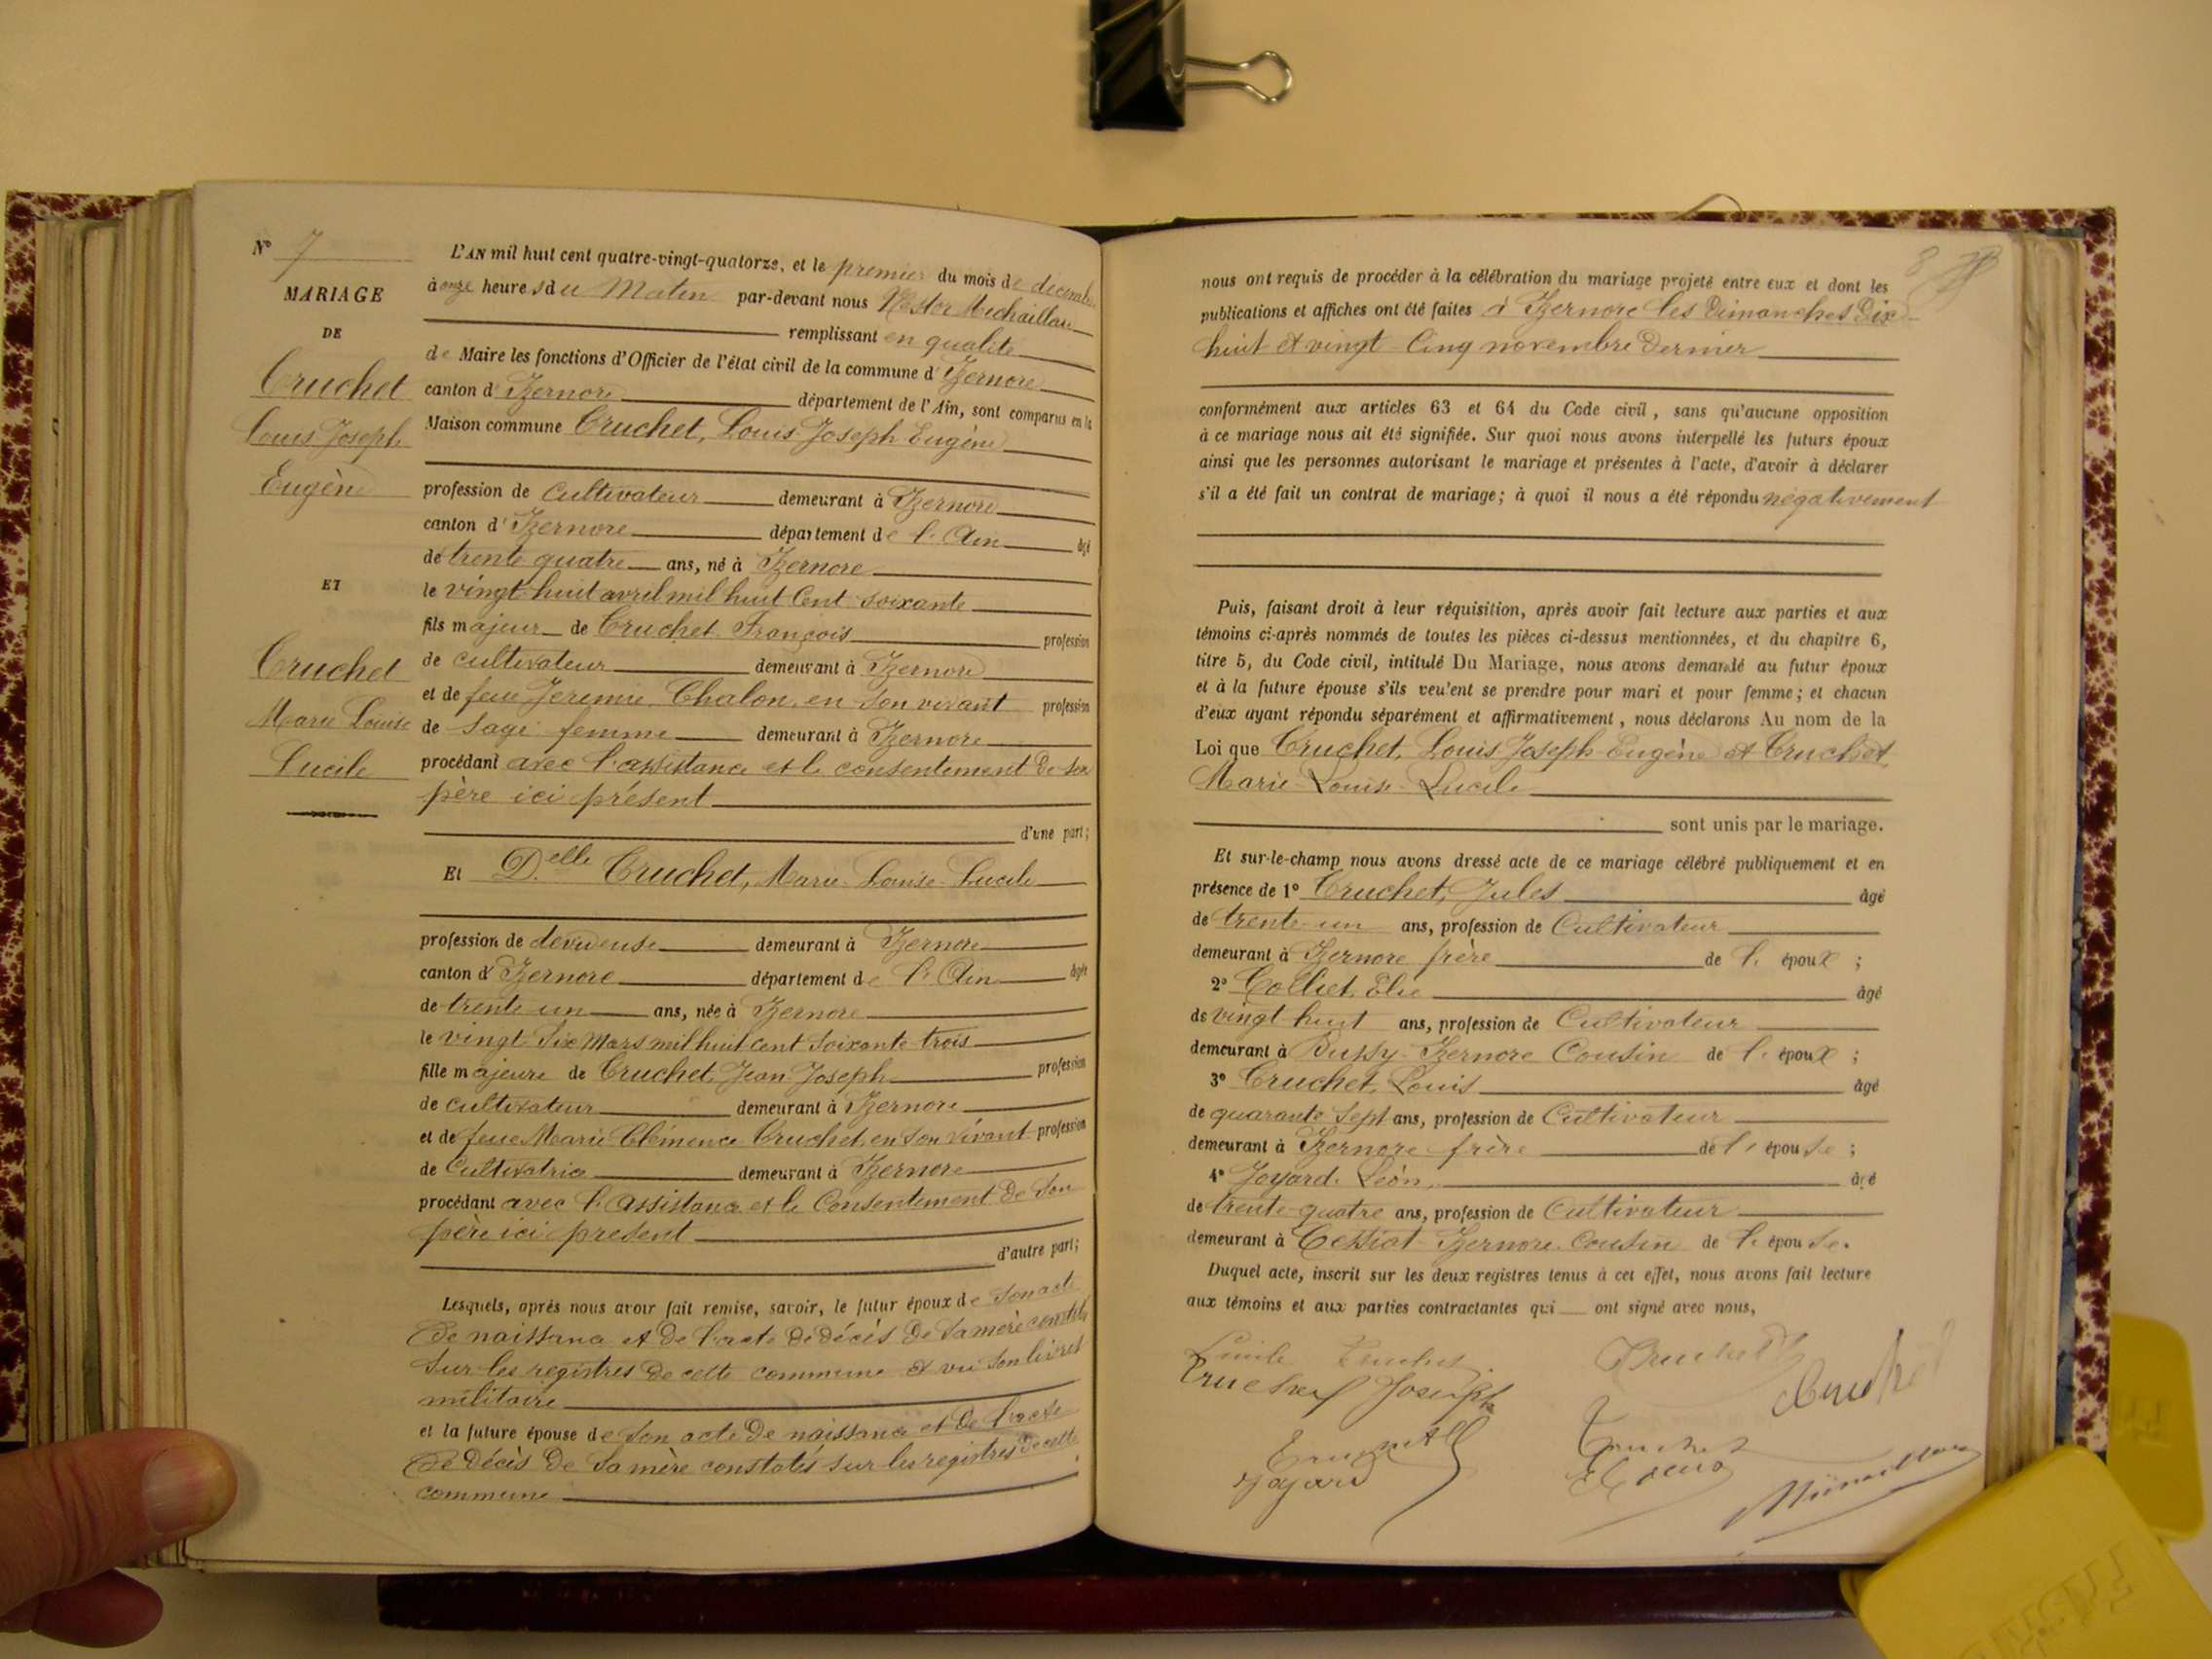 N° 7
MARIAGE
DE
Cruchet
Louis Joseph
Eugène
ET
Cruchet
Marie Louise
Lucile
L'AN mil huit cent quatre-vingt-quatorze, et le premier du mois de décembre
à onze heures du Matin par-devant nous Nestor
remplissant en qualité
de Maire les fonctions d'Officier de l'état civil de la commune d'Izernore
canton d'Izernore département de l'Ain, sont comparus en la
Maison commune Cruchet, Louis Joseph Eugène
profession de Cultivateur demeurant à Izernore
canton d'Izernore département de l'Ain âgé
de trente quatre ans, né à Izernore
le vingt huit avril mil huit Cent soixante
fils majeur de Cruchet François profession
de cultivateur demeurant à Izernore
et de feue Jeremie Chalon, en son vivant profession
de sage femme demeurant à Izernore
procédant avec l'assistance et le consentement de son
père ici présent
d'une part;
Et Delle Cruchet, Marie Louise Lucile
profession de devideuse demeurant à Izernore
canton d'Izernore département de l'Ain âgée
de trente un ans, née à Izernore
le vingt six Mars mil huit cent soixante trois
fille majeure de Cruchet Jean Joseph profession
de cultivateur demeurant à Izernore
et de feue Marie Clémence Cruchet, en son vivant profession
de Cultivatrice demeurant à Izernore
procédant avec l'assistance et le Consentement de son
père ici présent
d'autre part;
Lesquels, après nous avoir fait remise, savoir, le futur époux de son acte
de naissance et de l'acte de décès de sa mère constatés
sur les registres de cette commune et vu son livret
militaire
et la future épouse de son acte de naissance et de l'acte
de décès de sa mère constatés sur les registres de cette
commune
8
nous ont requis de procéder à la célébration du mariage projeté entre eux et dont les
publications et affiches ont été faites à Izernore les dimanches dix-
huit et vingt cinq novembre dernier
conformément aux articles 63 et 64 du Code civil, sans qu'aucune opposition
à ce mariage nous ait été signifiée. Sur quoi nous avons interpellé les futurs époux
ainsi que les personnes autorisant le mariage et présentes à l'acte, d'avoir à déclarer
s'il a été fait un contrat de mariage; à quoi il nous a été répondu négativement
Puis, faisant droit à leur réquisition, après avoir fait lecture aux parties et aux
témoins ci-après nommés de toutes les pièces ci-dessus mentionnées, et du chapitre 6,
titre 5, du Code civil, intitulé Du Mariage, nous avons demandé au futur époux
et à la future épouse s'ils veulent se prendre pour mari et pour femme; et chacun
d'eux ayant répondu séparément et affirmativement, nous déclarons Au nom de la
Loi que Cruchet, Louis Joseph Eugène et Cruchet,
Marie Louise Lucile
sont unis par le mariage.
Et sur-le-champ nous avons dressé acte de ce mariage célébré publiquement et en
présence de 1° Cruchet, Jules âgé
de trente-un ans, profession de Cultivateur
demeurant à Izernore frère de l'époux ;
2° Colliet, Elie âgé
de vingt huit ans, profession de Cultivateur
demeurant à Bussy Izernore Cousin de l'époux ;
3° Cruchet, Louis âgé
de quarante sept ans, profession de Cultivateur
demeurant à Izernore frère de l'épouse ;
4° Joyard Léon, âgé
de trente-quatre ans, profession de Cultivateur
demeurant à Cessiat Izernore Cousin de l'épouse.
Duquel acte, inscrit sur les deux registres tenus à cet effet, nous avons fait lecture
aux témoins et aux parties contractantes qui ont signé avec nous,
Lucile Cruchet
Cruchet Joseph
Joyard
Cruchet